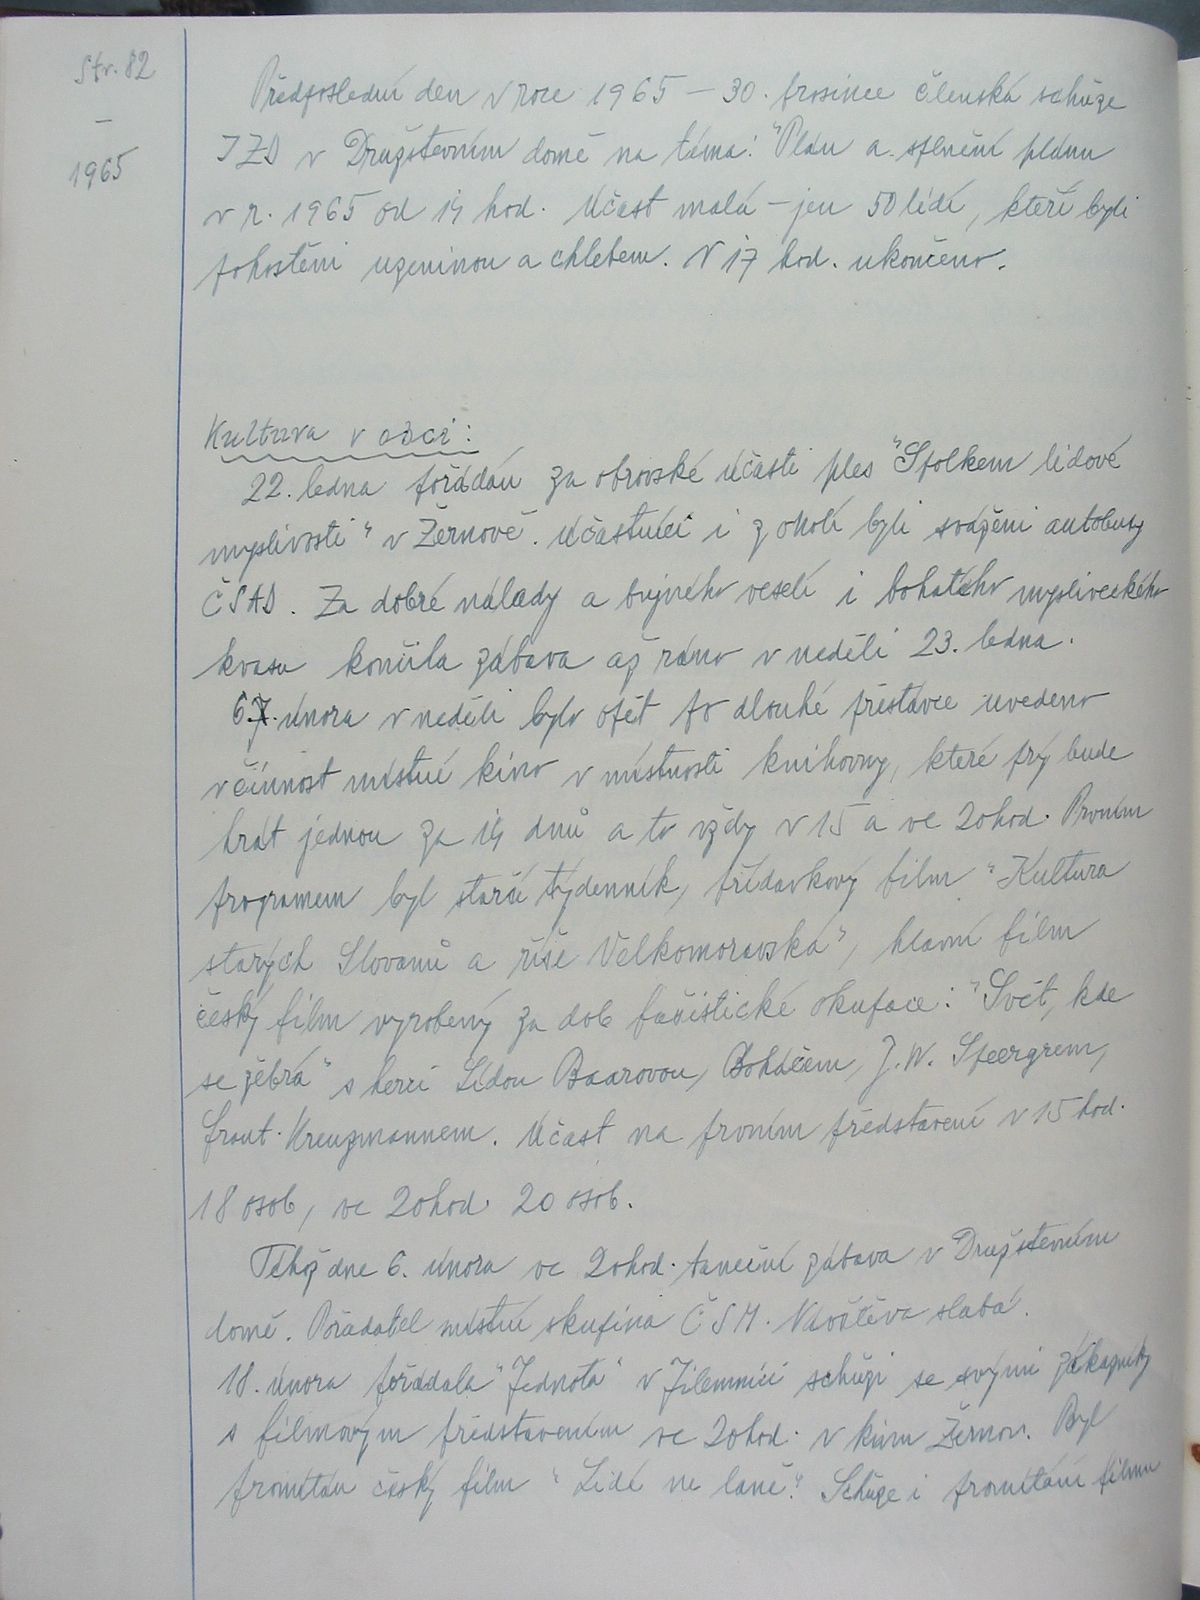 Str. 82
–
1965
Předposlední den v roce 1965 – 30. prosince členská schůze
JZD v Družstevním domě na téma: "Plán a splnění plánu
v r. 1965 od 14 hod. Účast malá – jen 50 lidí, kteří byli
pohostěni uzeninou a chlebem. V 17 hod. ukončeno.
Kultura v obci:
22. ledna pořádán za obrovské účasti ples "Spolkem lidové
myslivosti" v Žernově. Účastníci i z okolí byli sváženi autobusy
ČSAD. Za dobré nálady a bujného veselí i bohatého mysliveckého
kvasu končila zábava až ráno v neděli 23. ledna.
6. února v neděli bylo opět po dlouhé přestávce uvedeno
v činnost místní kino v místnosti knihovny, které prý bude
hrát jednou za 14 dnů a to vždy v 15 a ve 20 hod. Prvním
programem byl starší týdenník, přídavkový film "Kultura
starých Slovanů a říše Velkomoravská", hlavní film
český film vyrobený za dob fašistické okupace: "Svět, kde
se žebrá" s herci Lídou Baarovou, Boháčem, J. W. Speergrem,
frant. Kreuzmannem. Účast na prvním představení v 15 hod.
18 osob, ve 20 hod. 20 osob.
Téhož dne 6. února ve 20 hod. taneční zábava v Družstevním
domě. Pořadatel místní skupina ČSM. Návštěva slabá.
18. února pořádala "Jednota" v Jilemnici schůzi se svými zákazníky
s filmovým představením ve 20 hod. v kinu Žernov. Byl
promítán český film "Lidé na laně." Schůze i promítání filmu